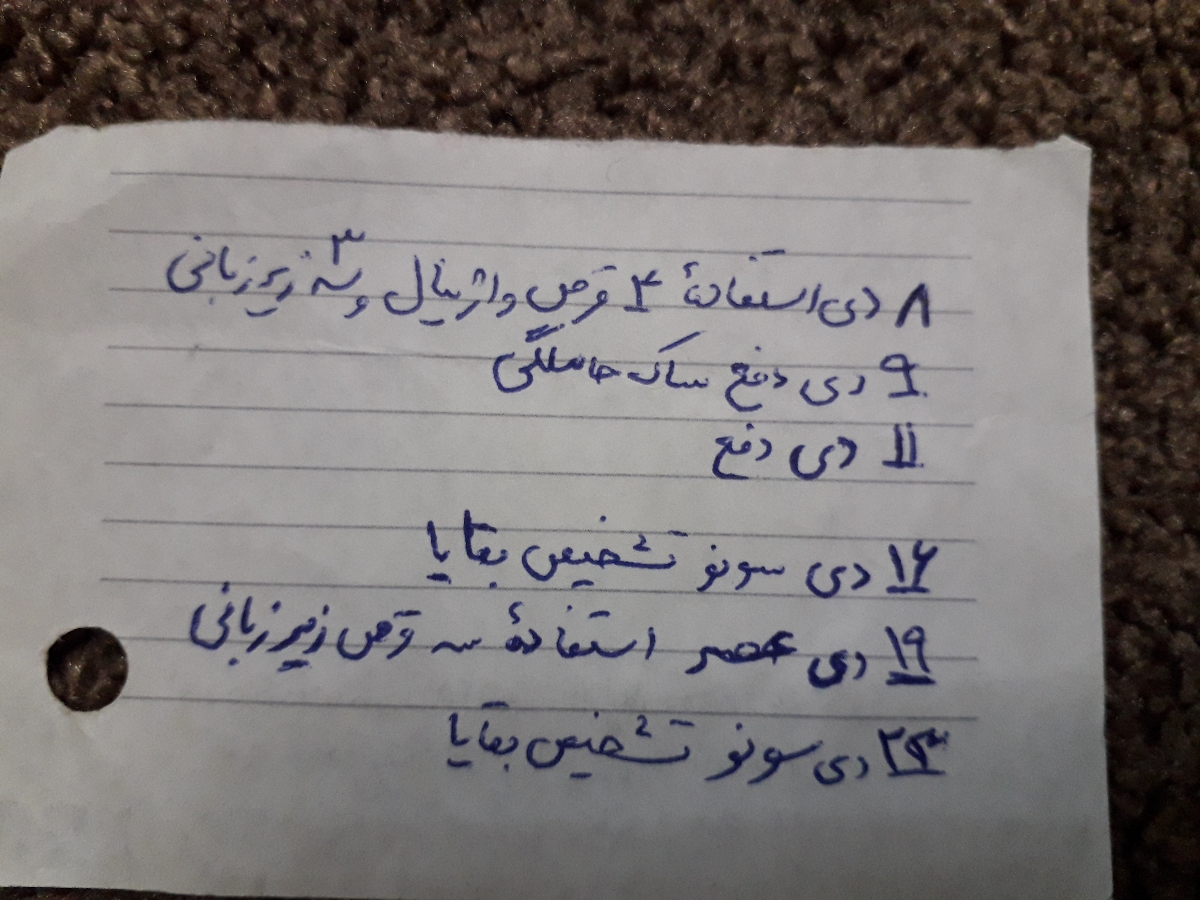 ۸ دی استفادهٔ ۴ قرص واژینال و سه ۳ زیرزبانی
۹ دی دفع ساک حاملگی
۱۱ دی دفع
۱۶ دی سونو تشخیص بقایا
۱۹ دی عصر استفادهٔ سه قرص زیرزبانی
دی سونو تشخیص بقایا